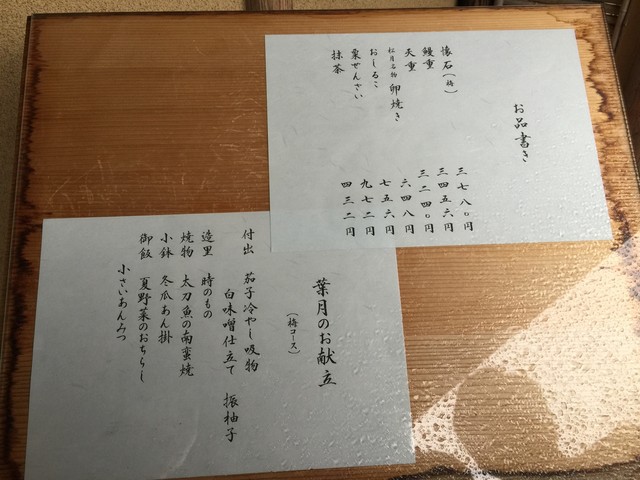 お品書き
懐石（梅）
三七八〇円
鰻重
三四五六円
天重
三二四〇円
松月名物 卵焼き
六四八円
おしるこ
七五六円
栗ぜんざい
九七二円
抹茶
四三二円
葉月のお献立
（梅コース）
付出 茄子冷やし吸物
白味噌仕立て 振柚子
造里 時のもの
焼物 太刀魚の南蛮焼
小鉢 冬瓜あん掛
御飯 夏野菜のおちらし
小さいあんみつ